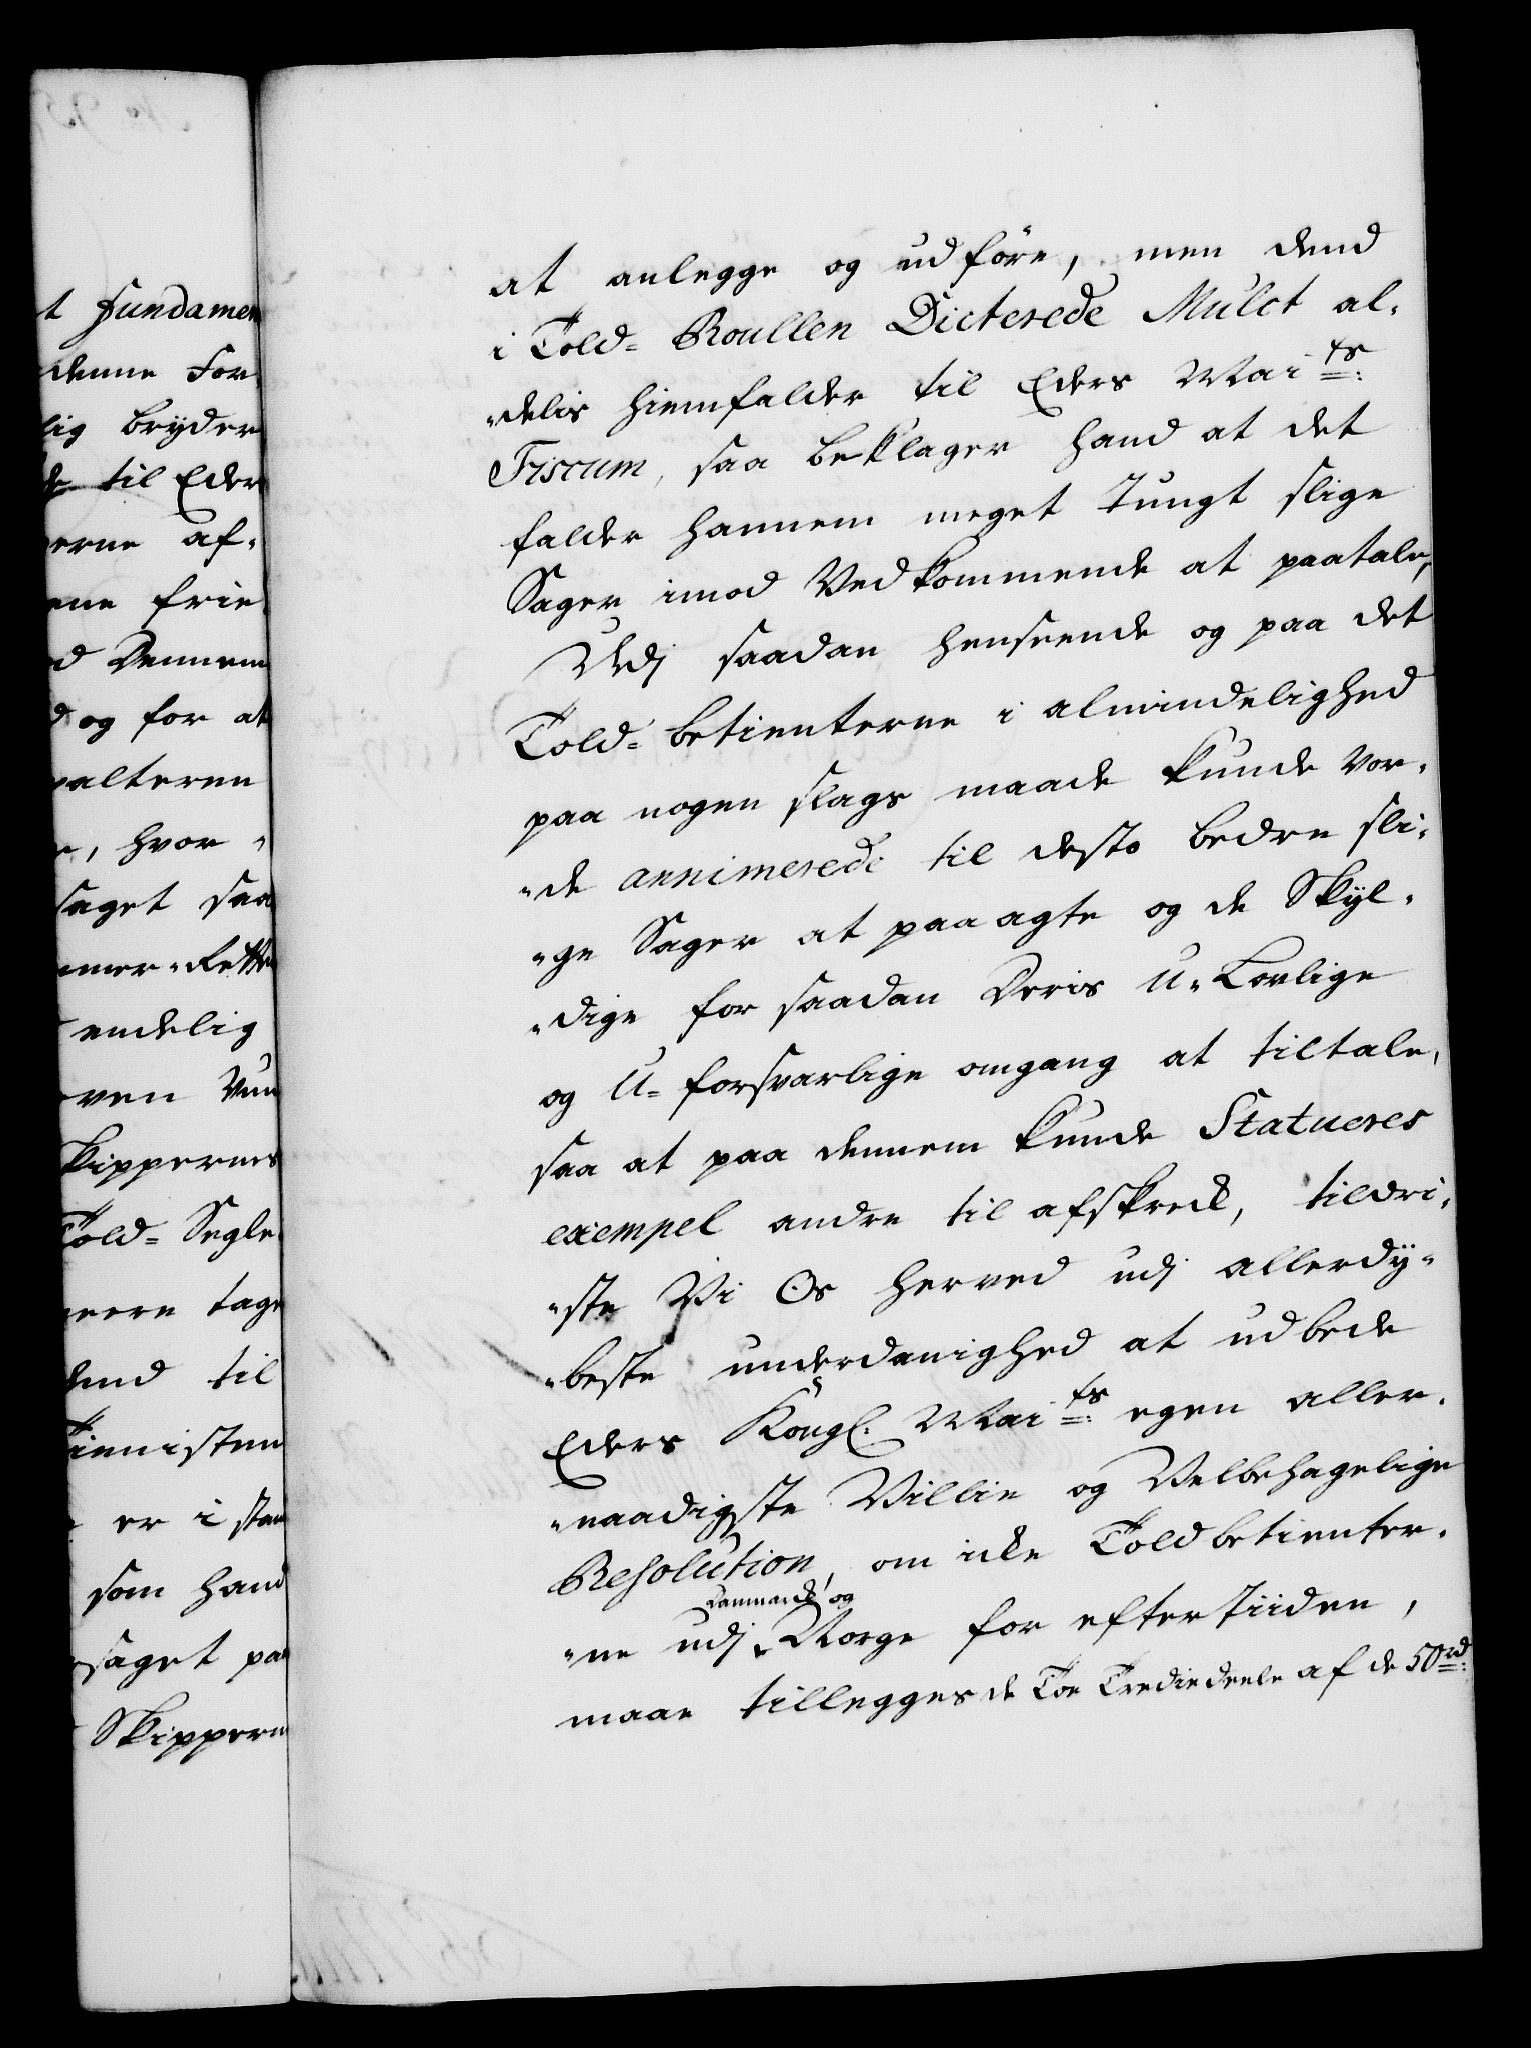 t Fundamen
denne For
lig bryder
de til Eder
erne af-
ene frie
d Dennem
d og for at
alterne
e, hvor-
saget saa
mer-Rette
endelig
ven Vun
kippernes
Told= Segle
eere tage
dend til
Tienisten
er i stan
som hand
saget paa
Skippern
at anlegge og udføre, men dend
i Told= Roullen Dicterede Mulct al-
"delis hiemfalder til Eders Mai ts:
Fiscum, saa beklager hand at det
falder hannem meget Tungt slige
Sager imod Vedkommende at paatale,
Udj saadan henseende og paa det
Told= betienterne i almindelighed
paa nogen slags maade kunde vor-
"de annimerede til desto bedre sli-
"ge Sager at paaagte og de Skyl-
"dige for saadan Deris U-Lovlige
og U=forsvarlige omgang at tiltale,
saa at paa dennem kunde Statueres
exempel andre til afskrek, tildri-
"ste Vi Os herved udj allerdy-
"beste underdanighed at udbede
Eders Kongl. Mai ts: egen aller-
"naadigste Villie og Velbehagelige
Resolution, om icke Toldbetienter-
Danmark og
"ne udj Norge for eftertiiden,
maae tillegges de Toe Trediedeele af de 50 rd: